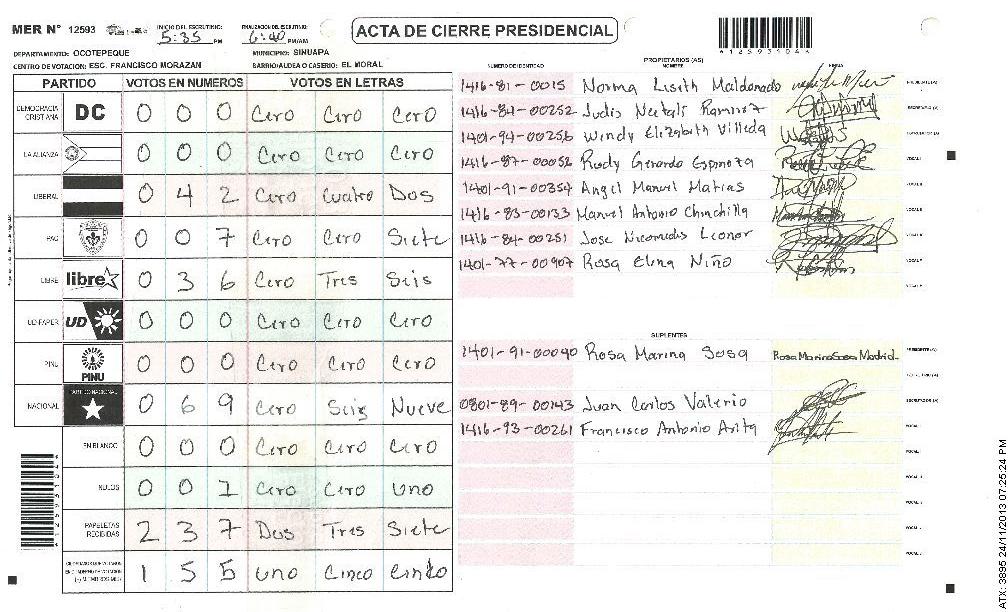 MER Nº 12593
INICIO DEL ESCRUTINIO: 5:35 PM
FINALIZACION DEL ESCRUTINIO: 6:40 PM/AM
ACTA DE CIERRE PRESIDENCIAL
DEPARTAMENTO: OCOTEPEQUE MUNICIPIO: SINUAPA
CENTRO DE VOTACION: ESC. FRANCISCO MORAZAN BARRIO/ALDEA O CASERIO: EL MORAL
PARTIDO VOTOS EN NUMEROS VOTOS EN LETRAS
DEMOCRACIA CRISTIANA DC 0 0 0 Cero Cero Cero
LA ALIANZA 0 0 0 Cero Cero Cero
LIBERAL 0 4 2 Cero Cuatro Dos
PAC 0 0 7 Cero Cero Siete
LIBRE libre 0 3 6 Cero Tres Seis
UD-FAPER UD 0 0 0 Cero Cero Cero
PINU PINU 0 0 0 Cero Cero Cero
NACIONAL PARTIDO NACIONAL 0 6 9 Cero Seis Nueve
EN BLANCO 0 0 0 Cero Cero Cero
NULOS 0 0 1 Cero Cero Uno
PAPELETAS RECIBIDAS 2 3 7 Dos Tres Siete
1 5 5 Uno Cinco Cinco
PROPIETARIOS (AS)
NUMERO DE IDENTIDAD NOMBRE FIRMA
1416-81-0015 Norma Liseth Maldonado
1416-84-00252 Judis Neetali Ramirez
1401-94-00256 Windy Elizabeth Villeda
1416-87-00052 Rudy Gerardo Espinoza
1401-91-00354 Angel Manuel Matias
1416-83-00133 Manuel Antonio Chinchilla
1416-84-00251 Jose Nicomedis Leonor
1401-77-00907 Rosa Elena Niño
SUPLENTES
1401-91-00090 Rosa Marina Sosa Rosa Marina Sosa Madrid
0801-89-00143 Juan Carlos Valerio
1416-93-00261 Francisco Antonio Arita
ATX: 3895 24/11/2013 07:25:24 PM